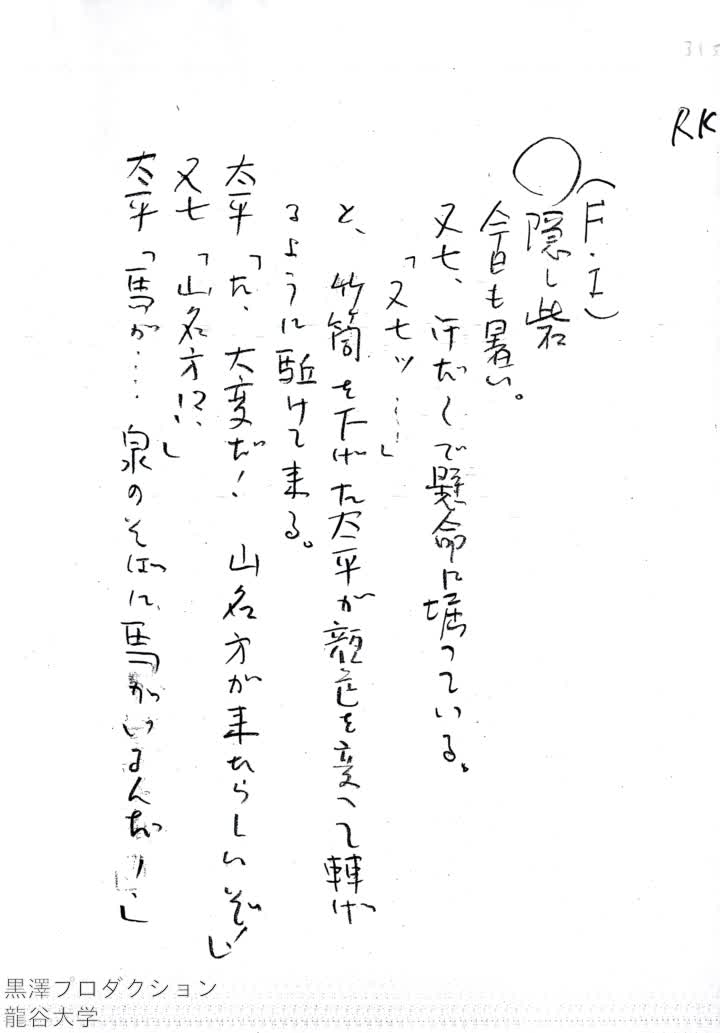 RK
(F・I)
○隠し砦
今日も暑い。
又七、汗だくで懸命に堀っている。
「又七ッ…!」
と、竹筒を下げた太平が顔色を変へて轉げ
るように駈けて来る。
太平「た、大変だ! 山名方が来たらしいぞ!」
又七「山名方!?」
太平「馬が…… 泉のそばに、馬がいるんだ!」
黒澤プロダクション
龍谷大学